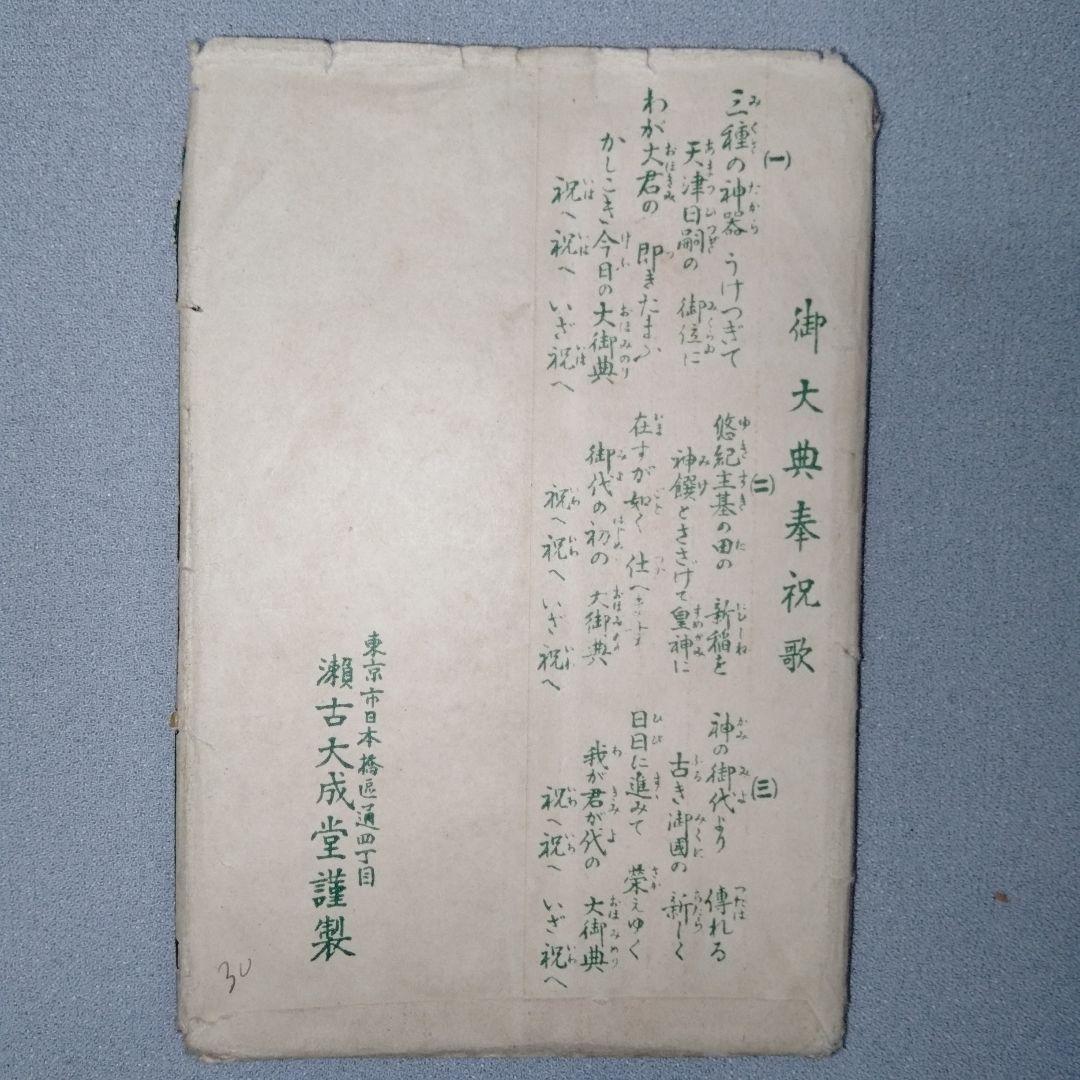 御大典奉祝歌
(一)
三種の神器 うけつぎて
天津日嗣の 御位に
わが大君の 即きたまふ
かしこき今日の大御典
祝へ祝へ いざ祝へ
(二)
悠紀主基の田の 新稲を
神饌とささげて皇神に
在すが如く 仕へます
御代の初の 大御典
祝へ祝へ いざ祝へ
(三)
神の御代より 傳れる
古き御國の 新しく
日日に進みて 榮えゆく
我が君が代の 大御典
祝へ祝へ いざ祝へ
東京市日本橋區通四丁目
瀬古大成堂謹製
30